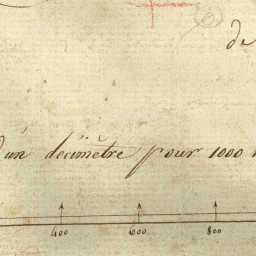 de
d'un decimètre pour 1000
400 600 800